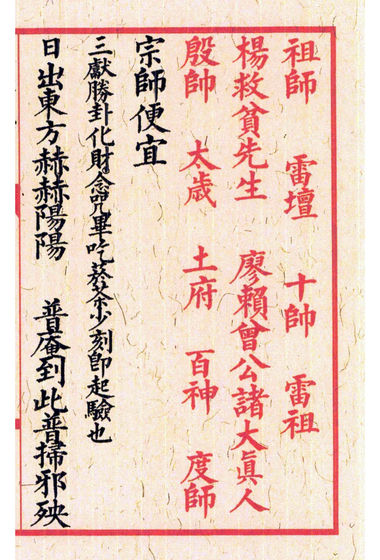 祖師 雷壇 十帥 雷祖
楊救貧先生 廖賴曾公諸大眞人
殷帥 太歲 土府 百神 度師
宗師便宜
三獻勝卦化財念咒畢吃蔡茶少刻即起驗也
日出東方赫赫陽陽 普庵到此普掃邪殃